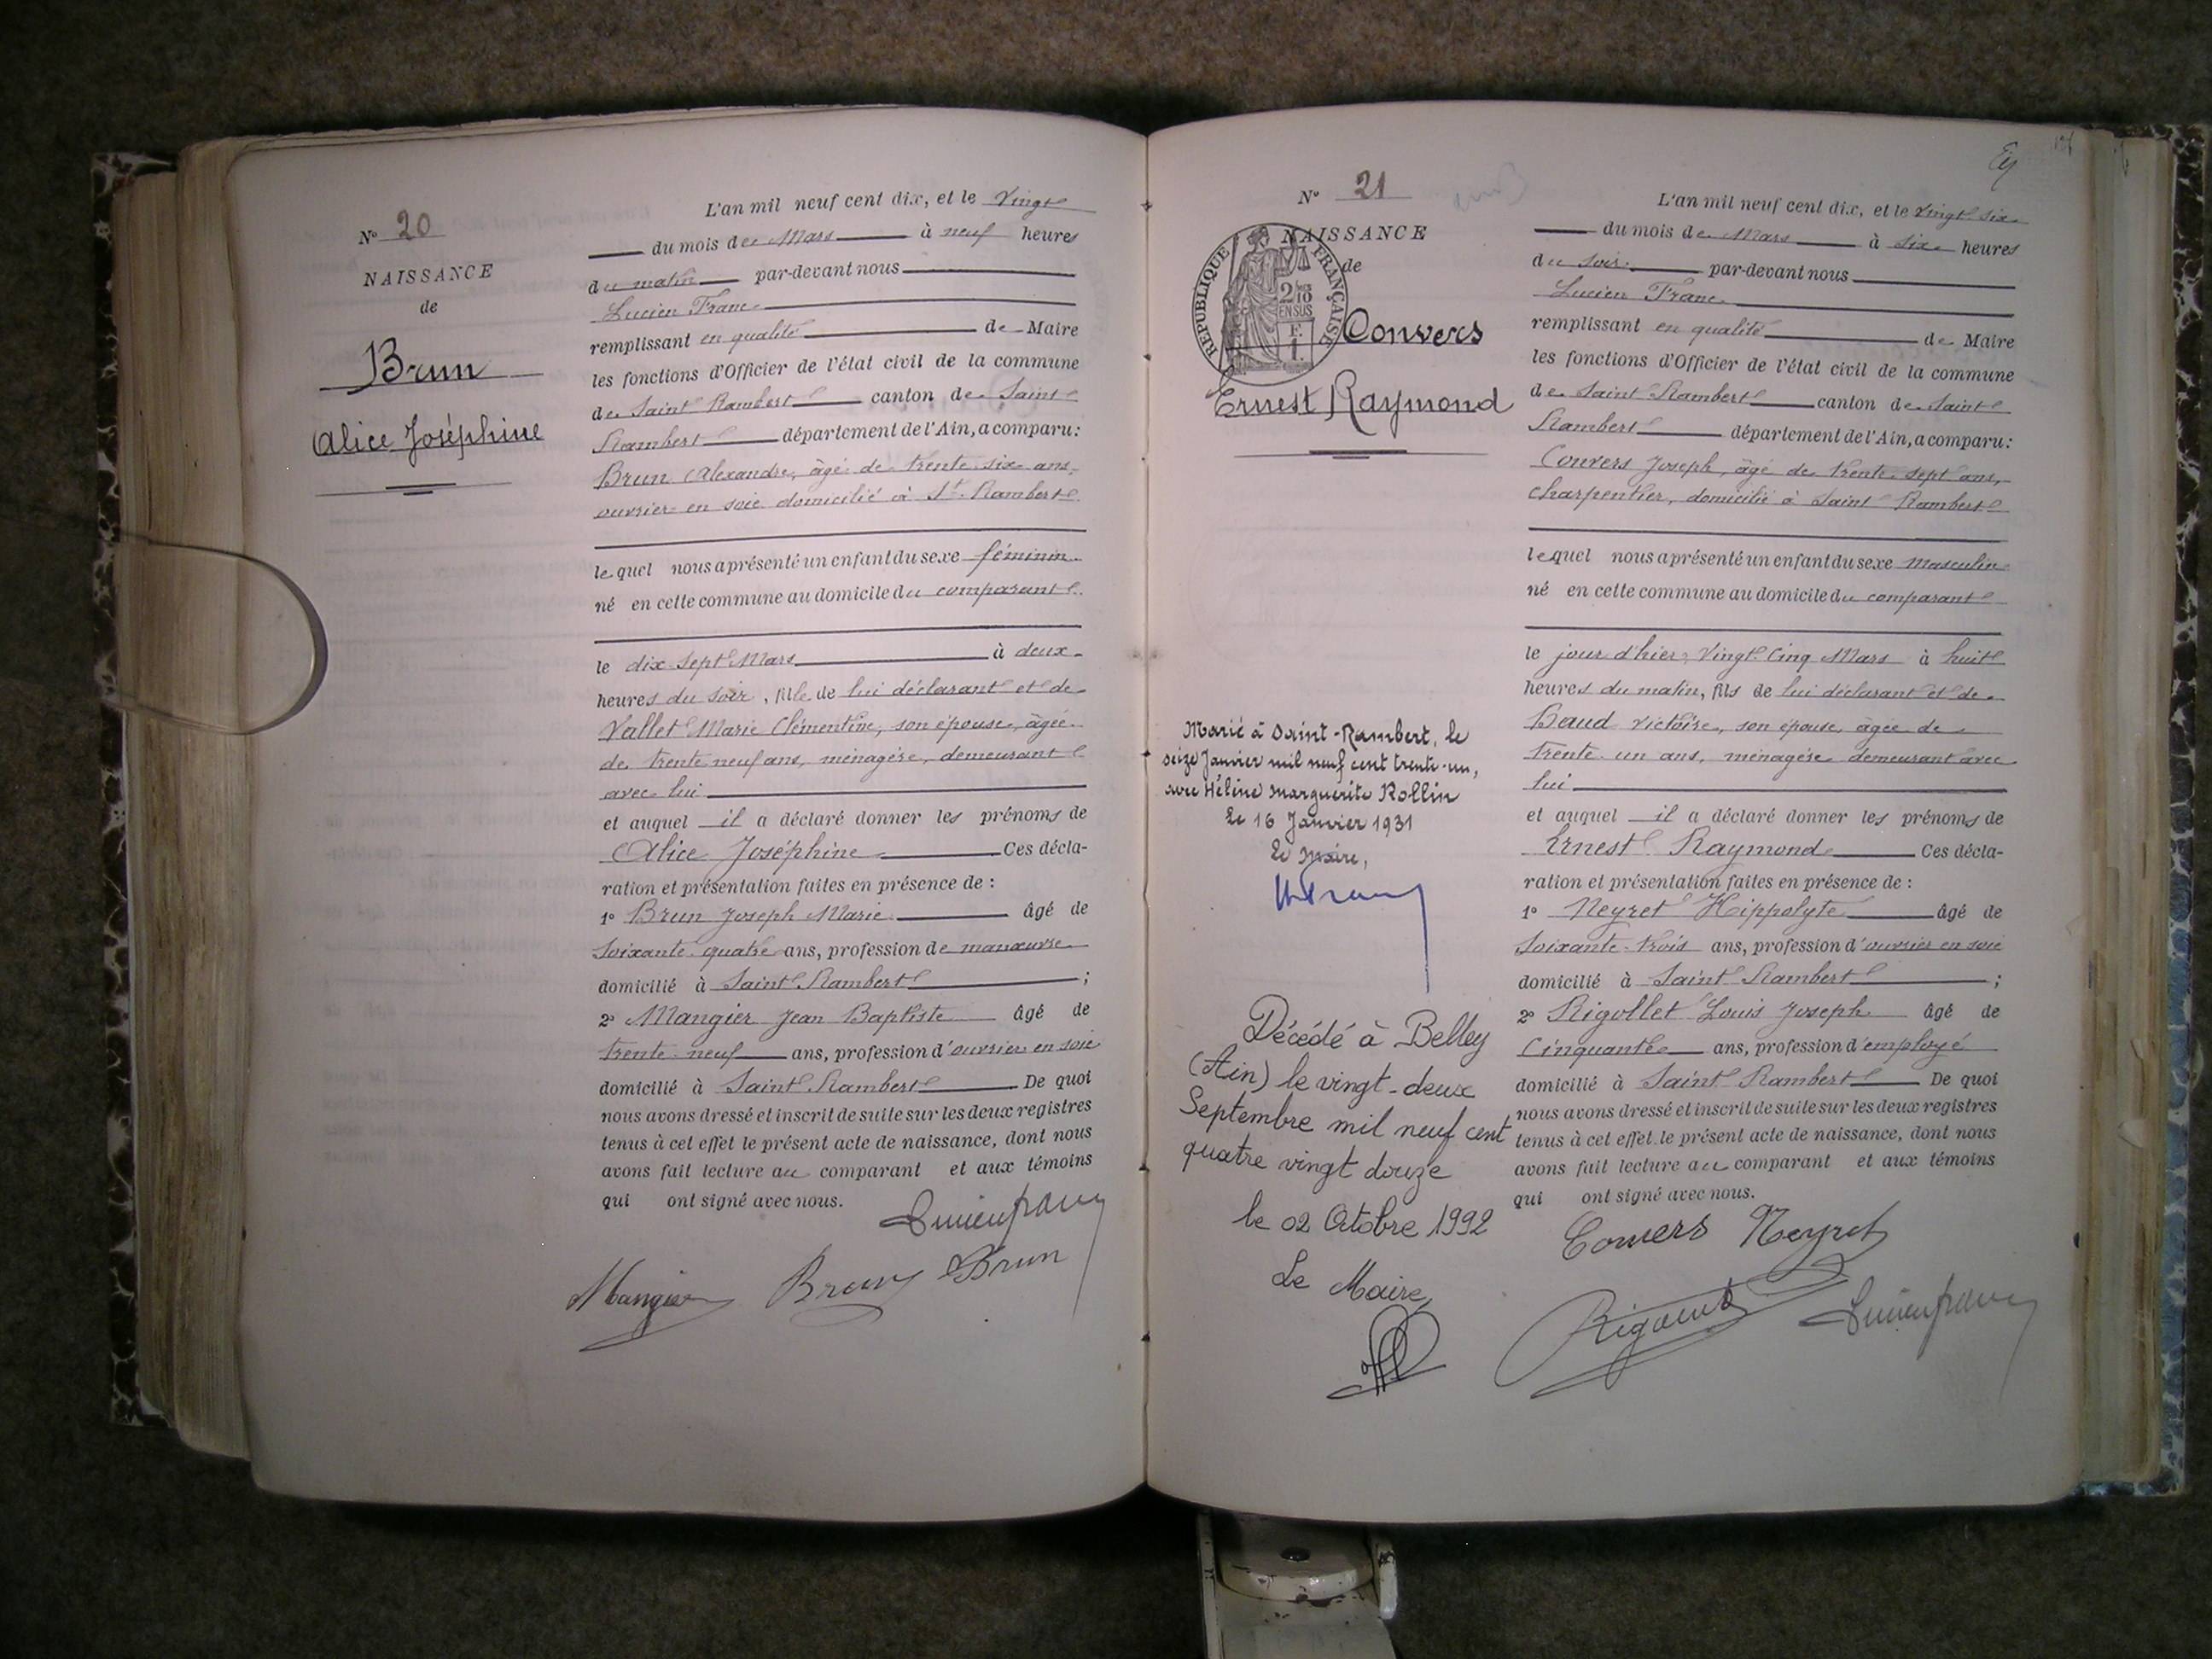 N° 20
NAISSANCE
de
Brun
Alice Joséphine
L'an mil neuf cent dix, et le vingt
du mois de Mars à neuf heures
du matin par-devant nous
Lucien Franc
remplissant en qualité de Maire
les fonctions d'Officier de l'état civil de la commune
de Saint Rambert canton de Saint
Rambert département de l'Ain, a comparu:
Brun Alexandre, âgé de trente six ans,
ouvrier en soie domicilié à St. Rambert
lequel nous a présenté un enfant du sexe féminin
né en cette commune au domicile du comparant
le dix sept Mars à deux
heures du soir, fille de lui déclarant et de
Vallet Marie Clémentine, son épouse, âgée
de trente neuf ans, ménagère, demeurant
avec lui
et auquel il a déclaré donner les prénoms de
Alice Joséphine Ces décla-
ration et présentation faites en présence de :
1° Brun Joseph Marie âgé de
soixante quatre ans, profession de manœuvre
domicilié à Saint Rambert ;
2° Mangier Jean Baptiste âgé de
trente neuf ans, profession d'ouvrier en soie
domicilié à Saint Rambert De quoi
nous avons dressé et inscrit de suite sur les deux registres
tenus à cet effet le présent acte de naissance, dont nous
avons fait lecture au comparant et aux témoins
qui ont signé avec nous.
Lucien franc
Mangier Brun Brun
N° 21
NAISSANCE
de
RÉPUBLIQUE FRANÇAISE
2/10
EN SUS
Convers
Ernest Raymond
Marié à Saint-Rambert, le
seize Janvier mil neuf cent trente-un,
avec Hélène Marguerite Rollin
Le 16 Janvier 1931
Le Maire,
Décédé à Belley
(Ain) le vingt-deux
Septembre mil neuf cent
quatre vingt douze
le 02 Octobre 1992
Le Maire,
L'an mil neuf cent dix, et le vingt six
du mois de Mars à six heures
du soir par-devant nous
Lucien Franc
remplissant en qualité de Maire
les fonctions d'Officier de l'état civil de la commune
de Saint Rambert canton de Saint
Rambert département de l'Ain, a comparu:
Convers Joseph, âgé de trente sept ans,
charpentier, domicilié à Saint Rambert
lequel nous a présenté un enfant du sexe masculin
né en cette commune au domicile du comparant
le jour d'hier, vingt cinq Mars à huit
heures du matin, fils de lui déclarant et de
Baud Victoire, son épouse, âgée de
trente un ans, ménagère demeurant avec
lui
et auquel il a déclaré donner les prénoms de
Ernest Raymond Ces décla-
ration et présentation faites en présence de :
1° Neyret Hippolyte âgé de
soixante trois ans, profession d'ouvrier en soie
domicilié à Saint Rambert ;
2° Rigollet Louis Joseph âgé de
cinquante ans, profession d'employé
domicilié à Saint Rambert De quoi
nous avons dressé et inscrit de suite sur les deux registres
tenus à cet effet le présent acte de naissance, dont nous
avons fait lecture au comparant et aux témoins
qui ont signé avec nous.
Convers Neyret
Lucien franc